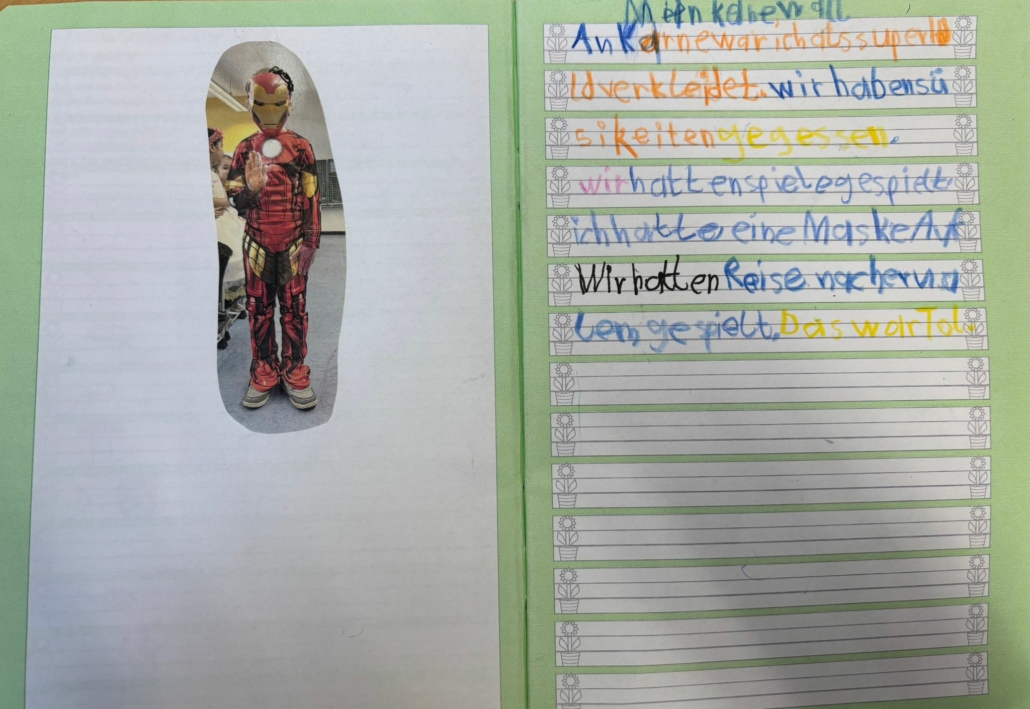 Mein kanewall
An Karnewar ich als superh
ld verkleidet. wir haben sü
sikeiten gegessen.
wir hatten spiele gespielt
ich hatte eine Maske Auf
Wir hatten Reise nach erusa
lem gespielt. Das war Tol.